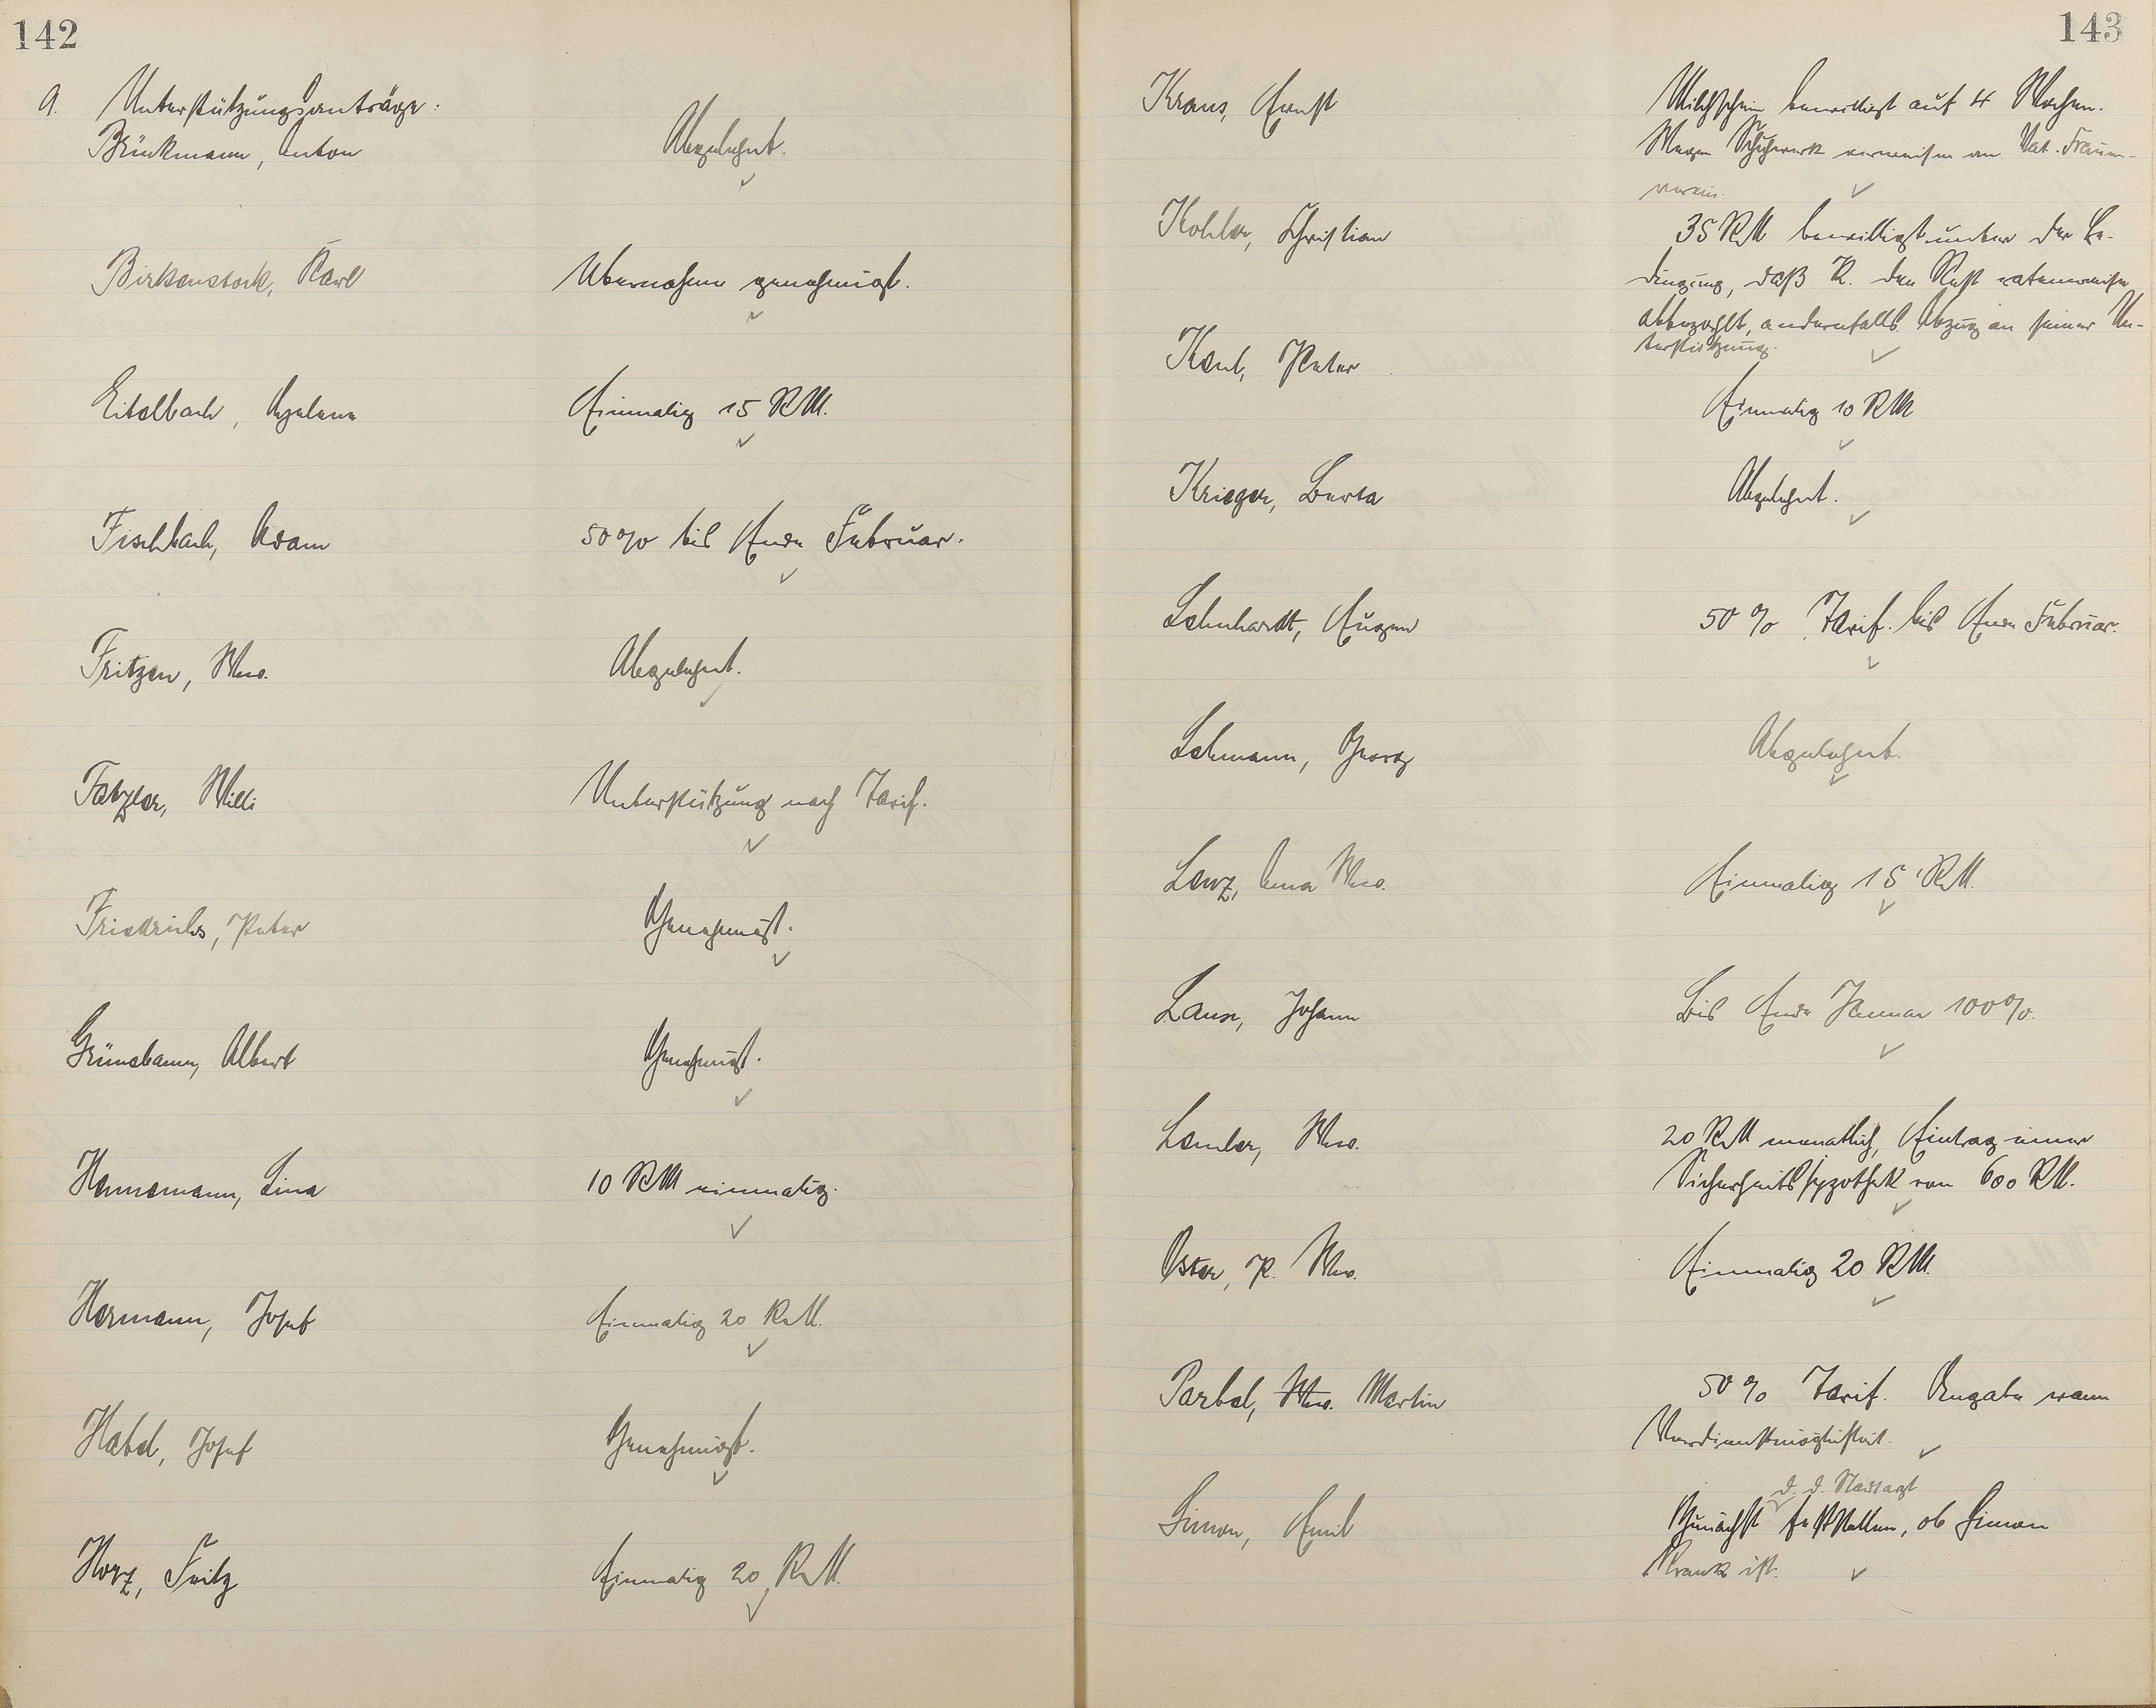 142
9. Unterstützungsanträge:
Brinkmann, Anton
Abgelehnt.
Birkenstock, Karl
Übernahme genehmigt.
Eitelbach, Helene
Einmalig 15 RM.
Fischbach, Adam
50% bis Ende Februar.
Fritzen, Wwe.
Abgelehnt.
Fetzer, Willi
Unterstützung nach Tarif.
Friedrichs, Peter
Genehmigt.
Grünebaum, Albert
Genehmigt.
Hannemann, Lina
10 RM einmalig.
Hermann, Josef
Einmalig 20 RM.
Habel, Josef
Genehmigt.
Horz, Fritz
Einmalig 20 RM.
143
Kraus, Ernst
Milchschein bewilligt auf 4 Wochen.
Wegen Schuhwerk verweisen an Vat. Frauen-
verein.
Kohler, Christian
35 RM bewilligt unter der Be-
dingung, daß K. den Rest ratenweise
abbezahlt, andernfalls Abzug an seiner Un-
terstützung.
Peter
Einmalig 10 RM
Krieger, Berta
Abgelehnt.
Lehnhardt, Eugen
50% Tarif. bis Ende Februar.
Lehmann, Georg
Abgelehnt.
Lenz, Anna Wwe.
Einmalig 15 RM.
Laux, Johann
Bis Ende Januar 100%.
Wwe.
20 RM monatlich, Eintrag einer
Sicherheitshypothek von 600 RM.
Oster, P. Wwe.
Einmalig 20 RM.
Parbel, Wwe. Martin
50% Tarif. Angabe wann
Verdienstmöglichkeit.
Simon, Emil
d. d. Stadtarzt
Zunächst feststellen, ob Simon
krank ist.